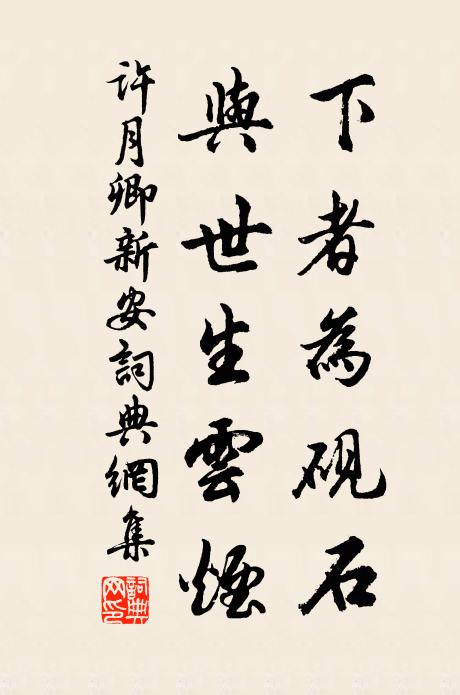 下者為硯石
與世生雲煙
許月卿新安詞典網集
詞典網印